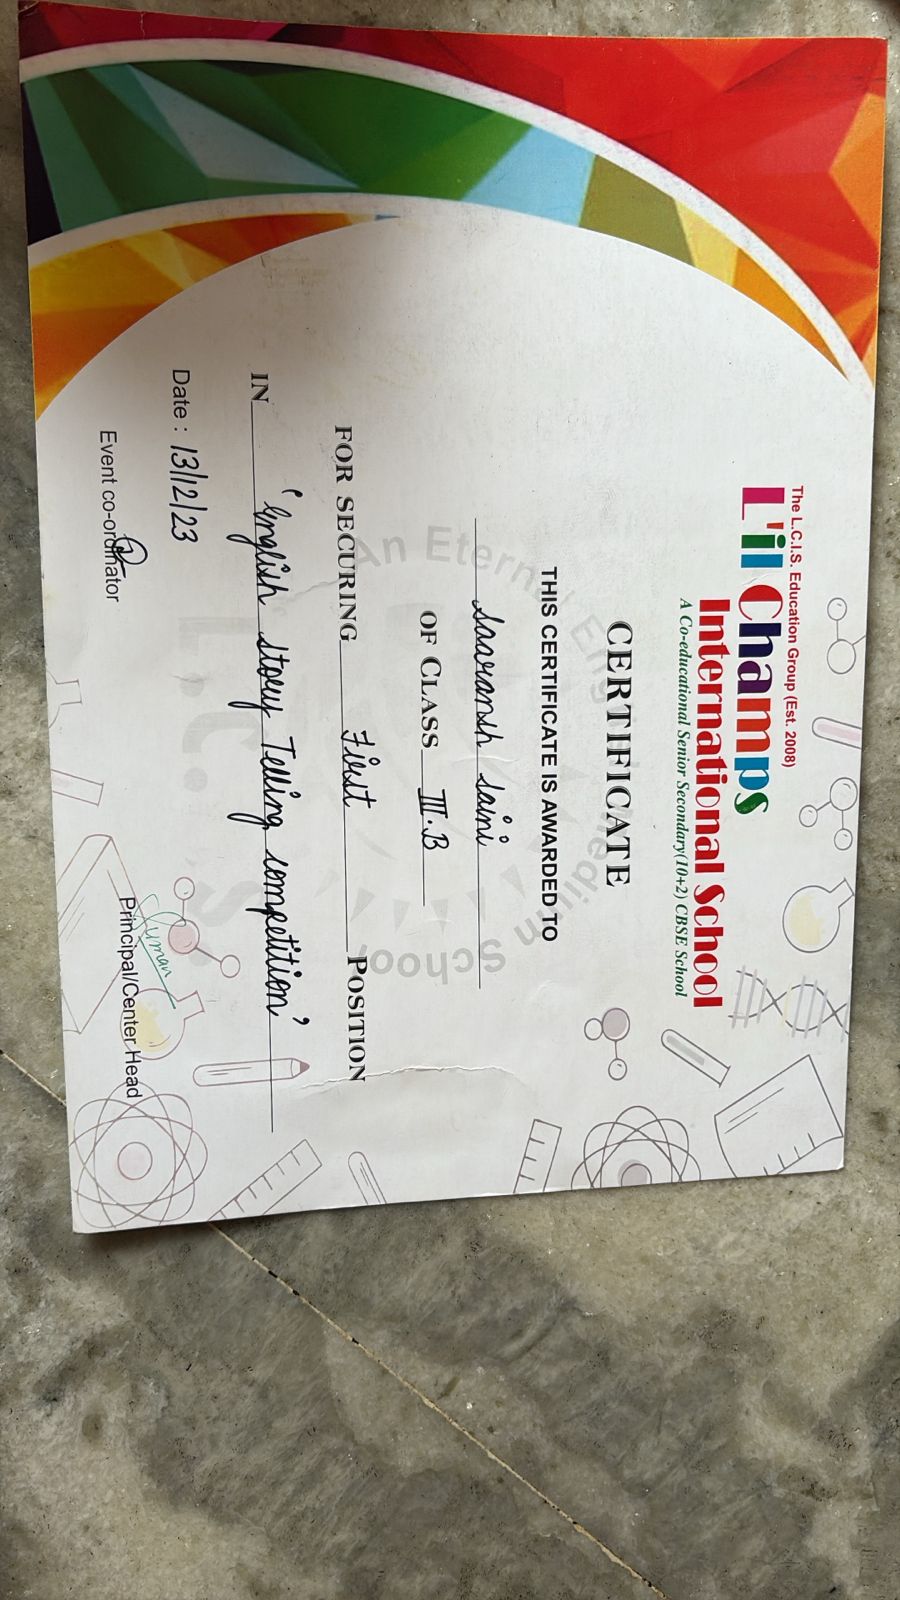 The L.C.I.S. Education Group (Est. 2008)
L'il Champs
International School
A Co-educational Senior Secondary(10+2) CBSE School
CERTIFICATE
THIS CERTIFICATE IS AWARDED TO
Saaransh Saini
OF CLASS III.B
FOR SECURING First POSITION
IN 'English Story Telling competition'
Date : 13/12/23
Event co-ordinator
Suman
Principal/Center Head
An Eternal English Medium School
L.C.I.S